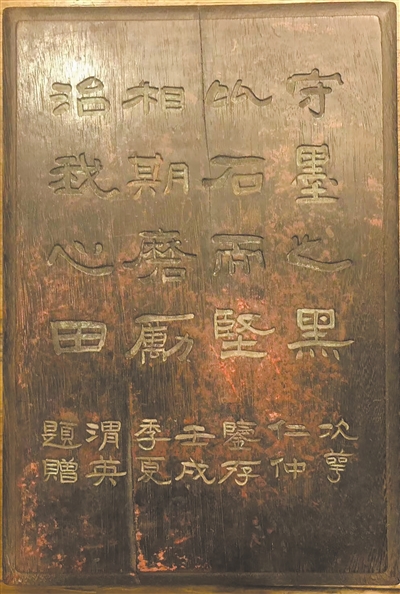 守墨之黑
以石而堅
相期磨勵
治我心田
次萼
仁仲
鑒存
壬戌
季夏
渭英
題贈